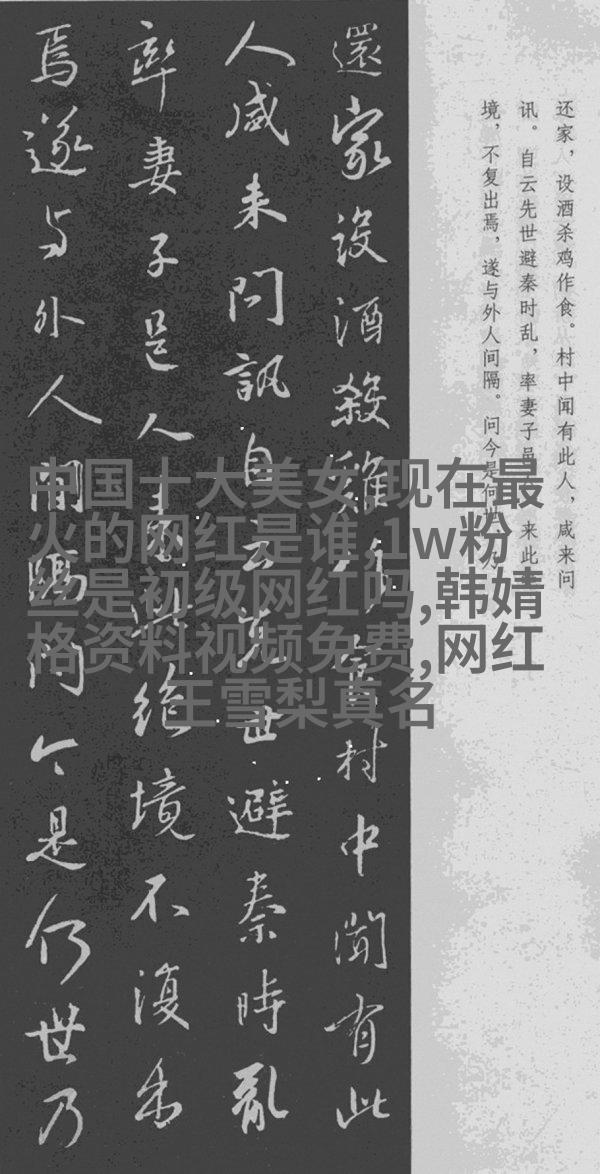 还家，设酒杀鸡作食。村中闻有此人，咸来问
讯。自云先世避秦时乱，率妻子邑人来此
境，不复出焉，遂与外人间隔。问今是何世，乃
還家設酒殺雞作食村中聞有此
人咸来問訊自云先世避秦時亂
率妻子邑人来此絶境不復出
焉遂与外人間隔問今是何世乃
中国十大美女,现在最
火的网红是谁,1w粉
丝是初级网红吗,韩婧
格资料视频免费,网红
王雪梨真名